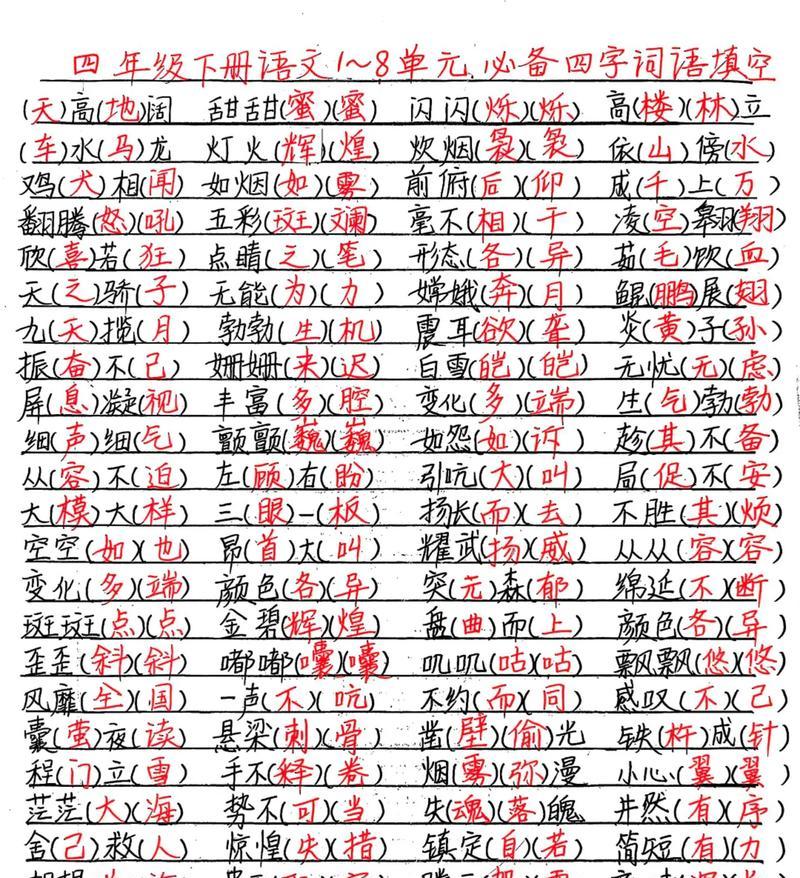 四年级下册语文1~8单元必备四字词语填空
(天)高(地)阔 甜甜(蜜)(蜜) 闪闪(烁)(烁) 高(楼)(林)立
(车)水(马)龙 灯火(辉)(煌) 炊烟(袅)(袅) 依(山)傍(水)
鸡(犬)相(闻) 如烟(如)(雾) 前俯(后)(仰) 成(千)上(万)
翻腾(怒)(吼) 五彩(斑)(斓) 毫不(相)(干) 凌(空)翱(翔)
欣(喜)若(狂) 点睛(之)(笔) 形态(各)(异) 茹(毛)饮(血)
天(之)骄(子) 无能(为)(力) 嫦娥(奔)(月) 鲲(鹏)展(翅)
九(天)揽(月) 勃勃(生)(机) 震耳(欲)(聋) 炎(黄)子(孙)
振(奋)不(已) 姗姗(来)(迟) 白雪(皑)(皑) 无忧(无)(虑)
屏(息)凝(视) 丰富(多)(腔) 变化(多)(端) 生(气)勃(勃)
细(声)细(气) 颤颤(巍)(巍) 如怨(如)(诉) 趁(其)不(备)
从(容)不(迫) 左(顾)右(盼) 引吭(大)(叫) 局(促)不(安)
大(模)大(样) 三(眼)一(板) 扬长(而)(去) 不胜(其)(烦)
空空(如)(也) 昂(首)大(叫) 耀武(扬)(威) 从从(容)(容)
变化(多)(端) 颜色(各)(异) 突(兀)森(郁) 绵延(不)(断)
斑斑(点)(点) 金碧(辉)(煌) 盘(曲)而(上) 颜色(各)(异)
歪歪(斜)(斜) 嘟嘟(囔)(囔) 叽叽(咕)(咕) 飘飘(悠)(悠)
风靡(全)(国) 一声(不)(吭) 不约(而)(同) 感叹(不)(已)
囊(萤)夜(读) 悬梁(刺)(骨) 凿(壁)(偷)光 铁(杵)成(针)
程(门)立(雪) 手不(释)(卷) 烟(雾)(弥)漫 小心(翼)(翼)
茫茫(大)(海) 势不(可)(当) 失(魂)(落)魄 井然(有)(序)
舍(己)救(人) 惊惶(失)(措) 镇定(自)(若) 简短(有)(力)